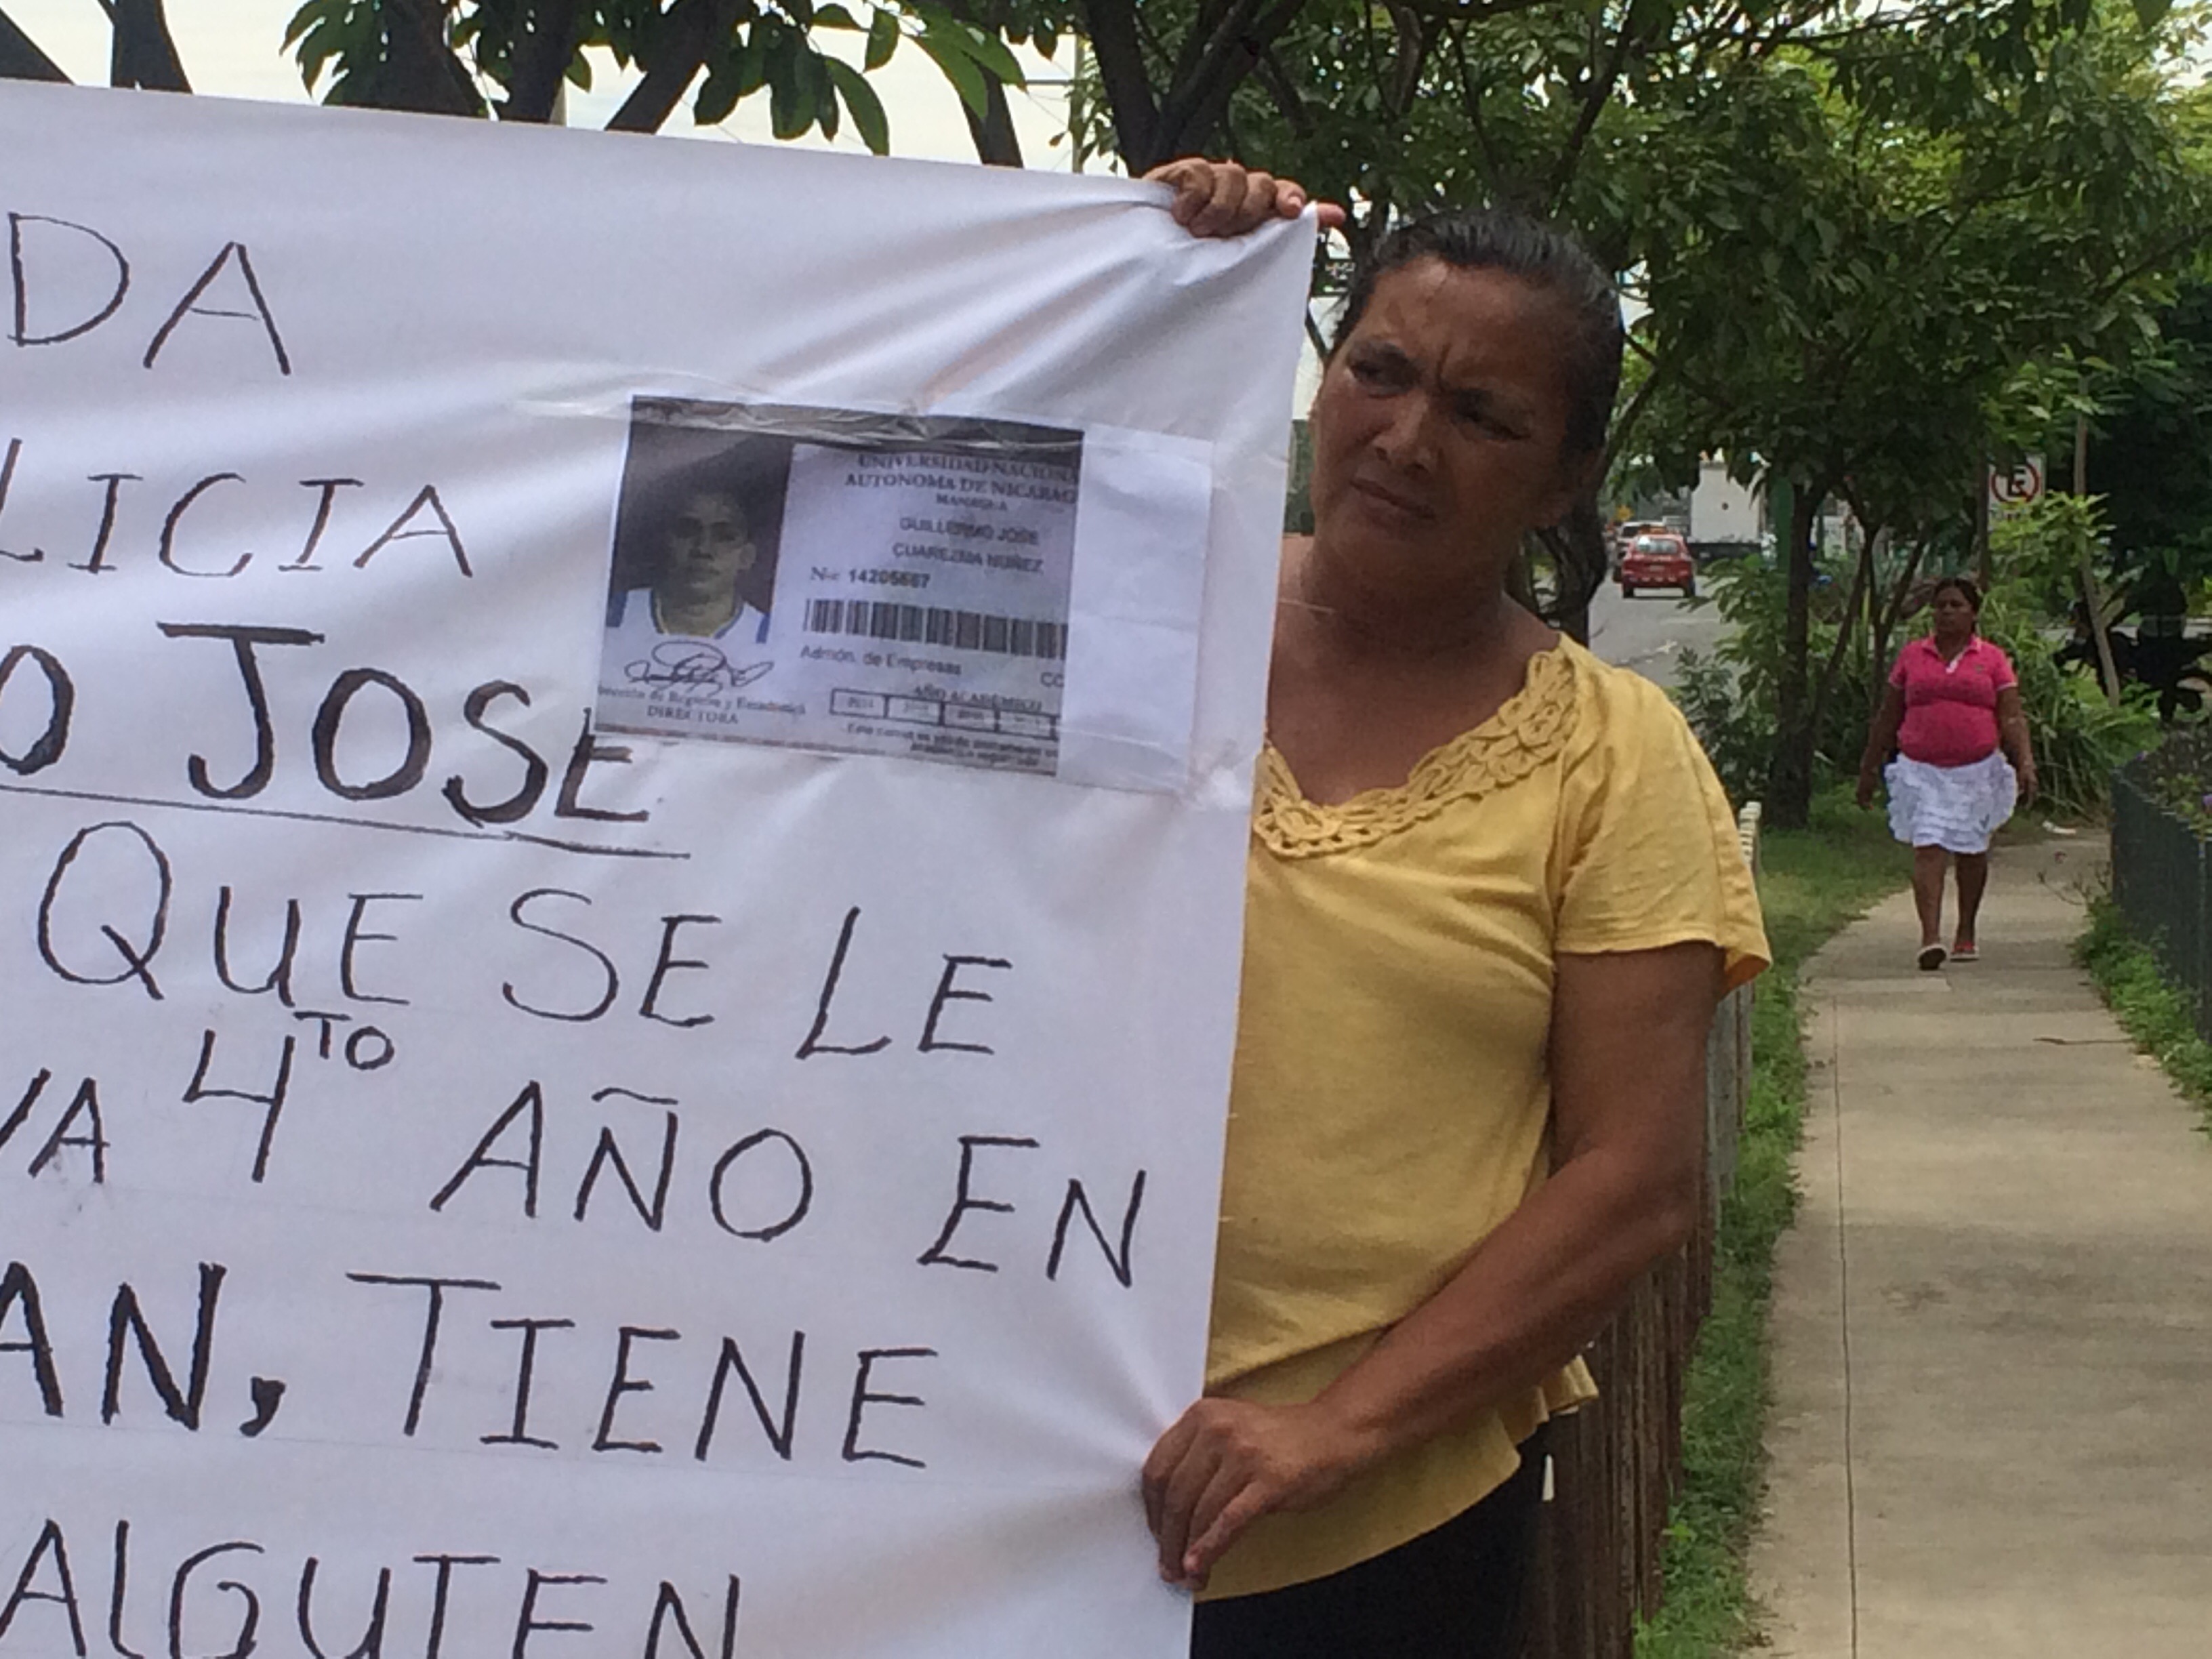 DA
LICIA
O JOSE
QUE SE LE
VA 4TO AÑO EN
AN, TIENE
ALGUIEN
UNIVERSIDAD NACIONA
AUTONOMA DE NICARAG
MANAGUA
GUILLERMO JOSE
CUAREZMA NUÑEZ
No: 14205667
Admón. de Empresas
CC
AÑO ACADEMICO
Dirección de Registro y Estadística
DIRECTORA
E